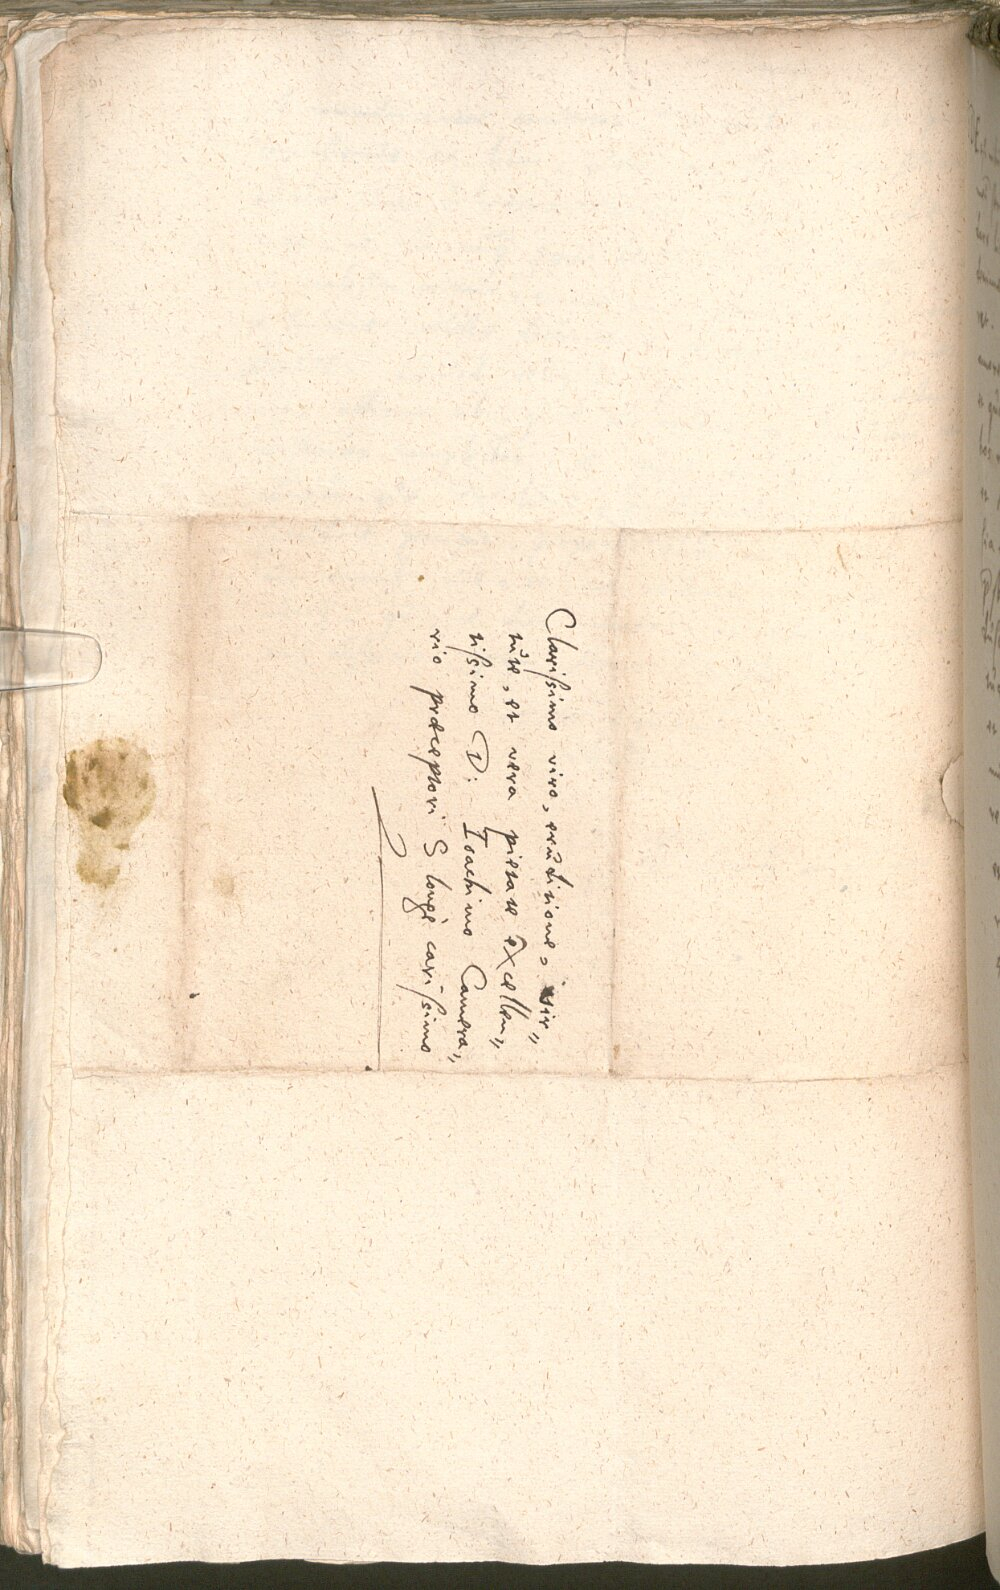 Clarissimo viro, eruditione, vir„
tute, et vera pietate excellen„
tissimo D: Ioachimo Camera„
rio præceptori S longè carissimo